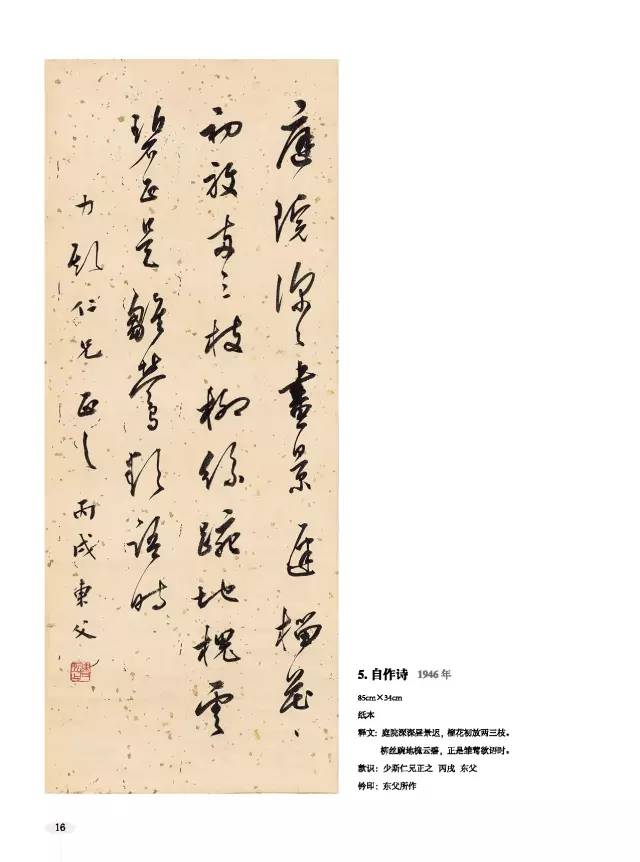 庭院深々晝景遲榴花
初放两三枝柳絲踠地槐雲
碧正是雛鶯欲語時
仁兄正之 丙戌東父
5. 自作诗 1946 年
85cm×34cm
纸本
释文：庭院深深昼景迟，榴花初放两三枝。
柳丝踠地槐云碧，正是雏莺欲语时。
款识：少斯仁兄正之 丙戌 东父
钤印：东父所作
16